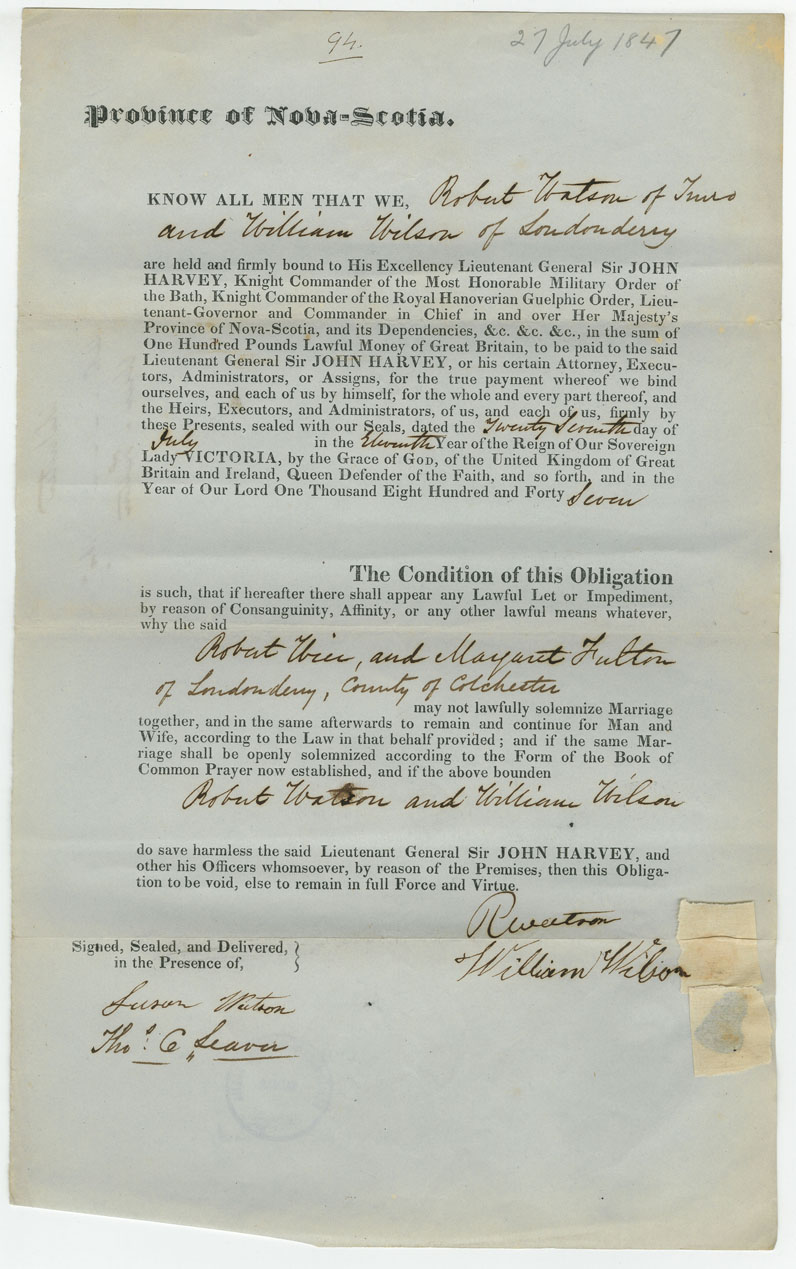 94.
27 July 1847
Province of Nova-Scotia.
KNOW ALL MEN THAT WE, Robert Watson of Truro
and William Wilson of Londonderry
are held and firmly bound to His Excellency Lieutenant General Sir JOHN
HARVEY, Knight Commander of the Most Honorable Military Order of
the Bath, Knight Commander of the Royal Hanoverian Guelphic Order, Lieu-
tenant-Governor and Commander in Chief in and over Her Majesty's
Province of Nova-Scotia, and its Dependencies, &c. &c. &c., in the sum of
One Hundred Pounds Lawful Money of Great Britain, to be paid to the said
Lieutenant General Sir JOHN HARVEY, or his certain Attorney, Execu-
tors, Administrators, or Assigns, for the true payment whereof we bind
ourselves, and each of us by himself, for the whole and every part thereof, and
the Heirs, Executors, and Administrators, of us, and each of us, firmly by
these Presents, sealed with our Seals, dated the Twenty Seventh day of
July in the Eleventh Year of the Reign of Our Sovereign
Lady VICTORIA, by the Grace of GOD, of the United Kingdom of Great
Britain and Ireland, Queen Defender of the Faith, and so forth, and in the
Year of Our Lord One Thousand Eight Hundred and Forty Seven
The Condition of this Obligation
is such, that if hereafter there shall appear any Lawful Let or Impediment,
by reason of Consanguinity, Affinity, or any other lawful means whatever,
why the said
Robert Wier, and Margaret Fulton
of Londonderry, County of Colchester
may not lawfully solemnize Marriage
together, and in the same afterwards to remain and continue for Man and
Wife, according to the Law in that behalf provided; and if the same Mar-
riage shall be openly solemnized according to the Form of the Book of
Common Prayer now established, and if the above bounden
Robert Watson and William Wilson
do save harmless the said Lieutenant General Sir JOHN HARVEY, and
other his Officers whomsoever, by reason of the Premises, then this Obliga-
tion to be void, else to remain in full Force and Virtue.
R Watson
William Wilson
Signed, Sealed, and Delivered,
in the Presence of,
Susan Watson
Thos. C Leaver